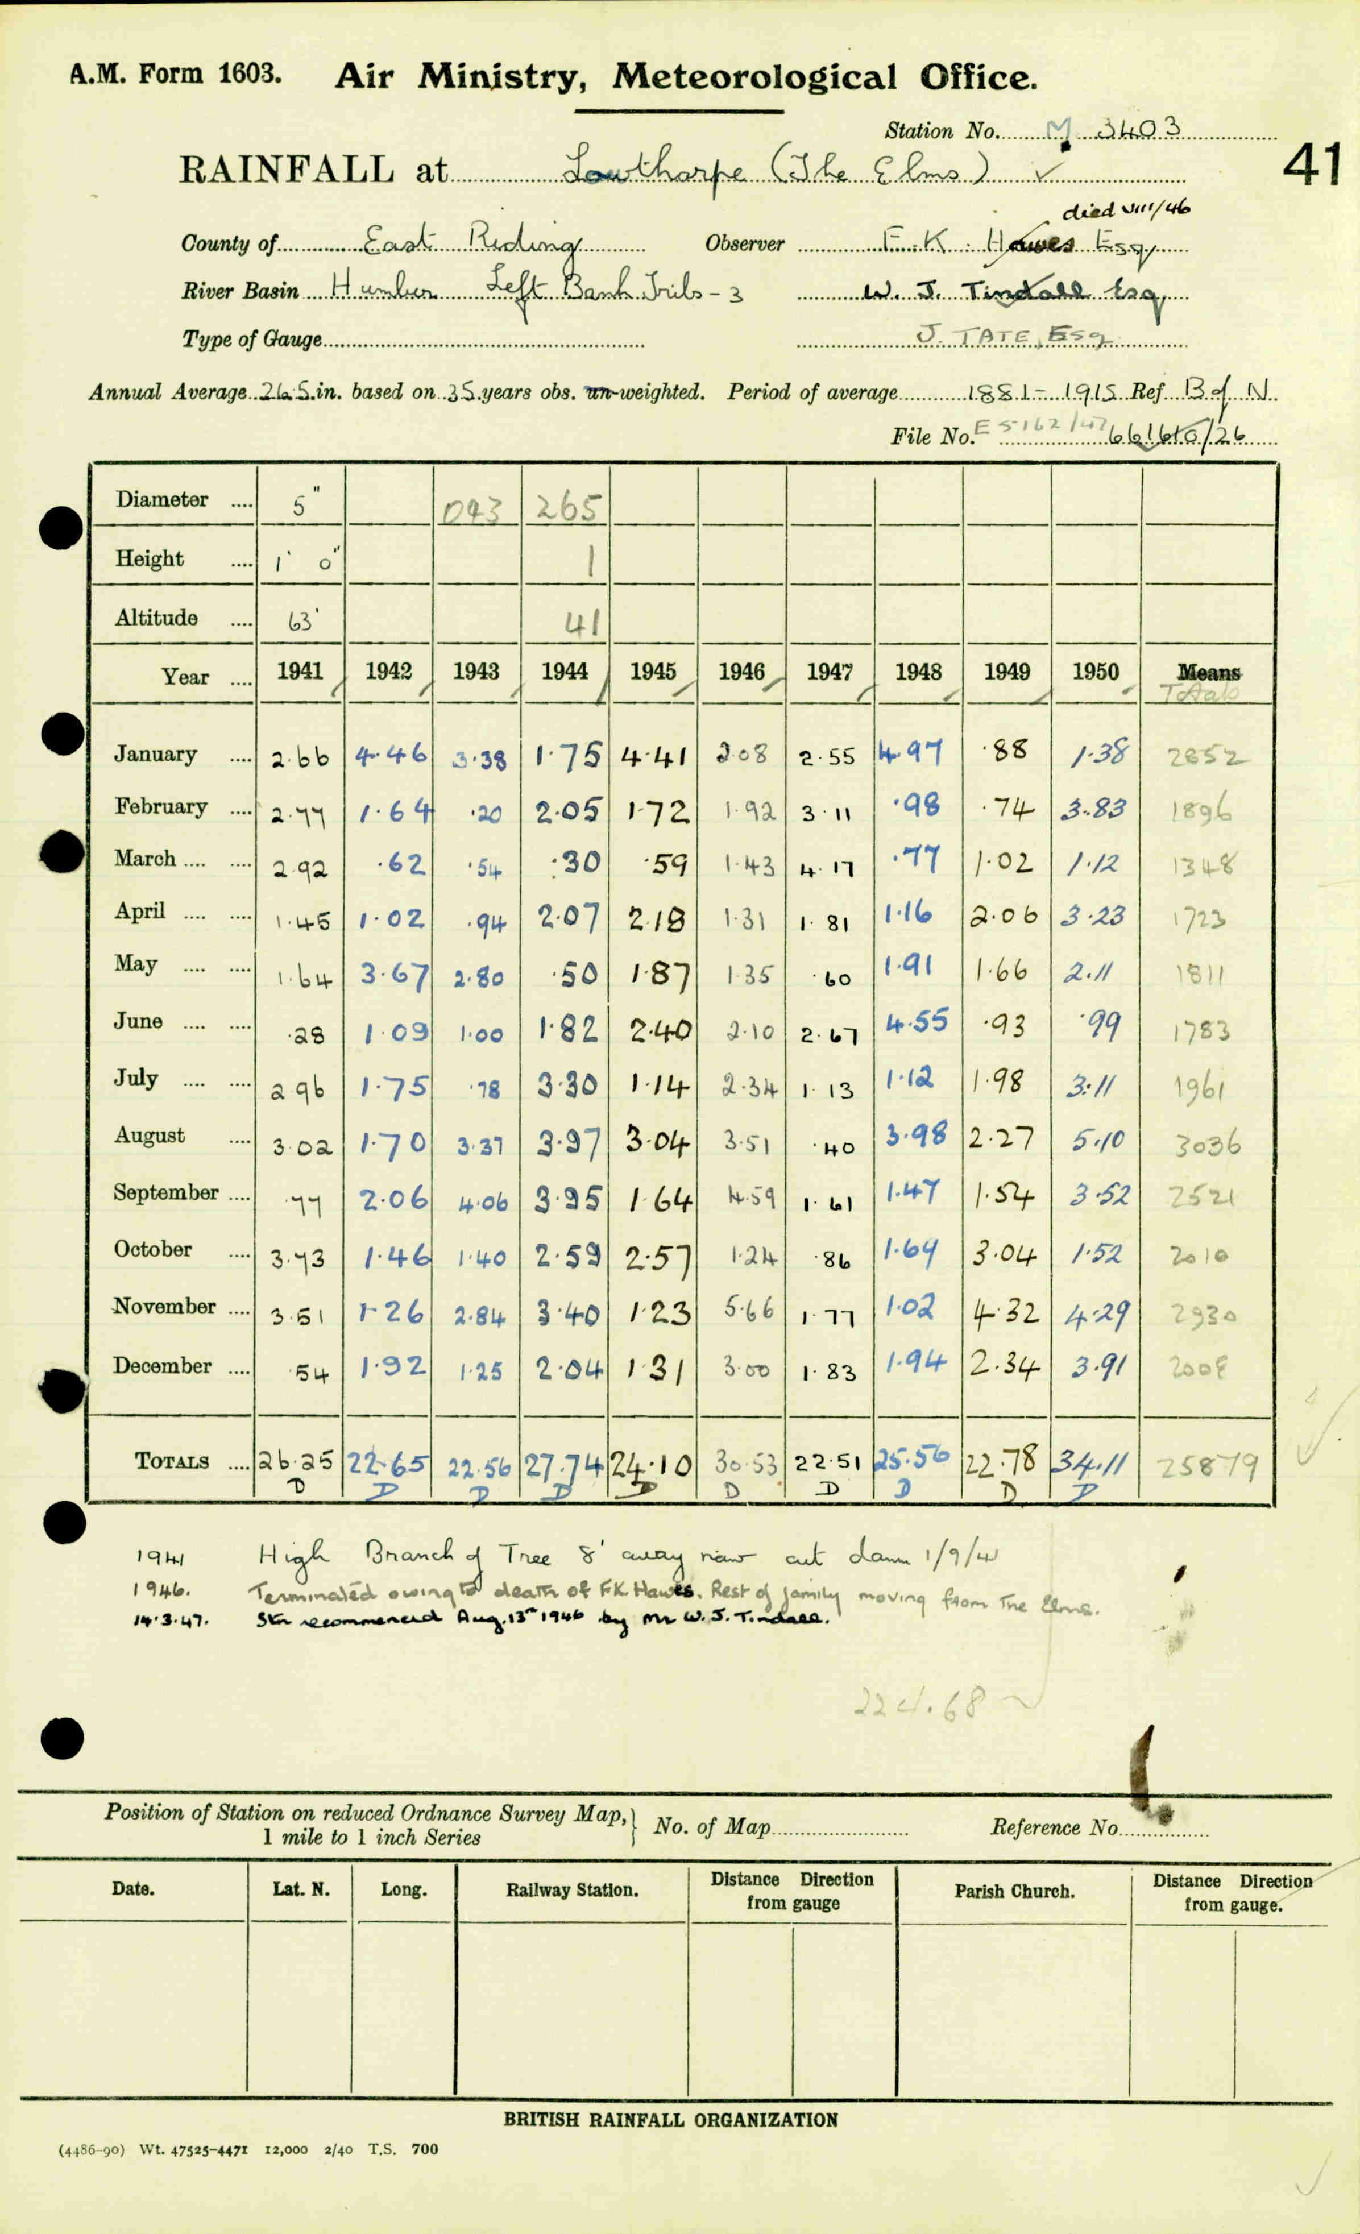 A.M. Form 1603. Air Ministry, Meteorological Office.
Station No. M 3403
41
RAINFALL at Lowthorpe (The Elms) ✓
died VIII/46
County of East Riding Observer F. K. Hawes Esq
River Basin Humber Left Bank Tribs - 3 W. J. Tindall Esq
Type of Gauge J. TATE, Esq.
Annual Average 26.5 in. based on 35 years obs. un-weighted. Period of average 1881 - 1915 Ref B of N
File No. E 5162/47 661610/26
Diameter .... 5" 093 265
Height .... 1' 0" 1
Altitude .... 63' 41
Year .... 1941 1942 1943 1944 1945 1946 1947 1948 1949 1950 Means
Totals
January .... 2.66 4.46 3.38 1.75 4.41 2.08 2.55 4.97 .88 1.38 2852
February .... 2.77 1.64 .20 2.05 1.72 1.92 3.11 .98 .74 3.83 1896
March .... .... 2.92 .62 .54 .30 .59 1.43 4.17 .77 1.02 1.12 1348
April .... .... 1.45 1.02 .94 2.07 2.18 1.31 1.81 1.16 2.06 3.23 1723
May .... .... 1.64 3.67 2.80 .50 1.87 1.35 .60 1.91 1.66 2.11 1811
June .... .... .28 1.09 1.00 1.82 2.40 2.10 2.67 4.55 .93 .99 1783
July .... .... 2.96 1.75 .78 3.30 1.14 2.34 1.13 1.12 1.98 3.11 1961
August .... 3.02 1.70 3.37 3.97 3.04 3.51 .40 3.98 2.27 5.10 3036
September .... .77 2.06 4.06 3.95 1.64 4.59 1.61 1.47 1.54 3.52 2521
October .... 3.73 1.46 1.40 2.59 2.57 1.24 .86 1.69 3.04 1.52 2010
November .... 3.51 1.26 2.84 3.40 1.23 5.66 1.77 1.02 4.32 4.29 2930
December .... .54 1.92 1.25 2.04 1.31 3.00 1.83 1.94 2.34 3.91 2008
TOTALS .... 26.25 22.65 22.56 27.74 24.10 30.53 22.51 25.56 22.78 34.11 25879
D D D D D D D D D D
1941 High Branch of Tree 8' away now cut down 1/9/41
1946. Terminated owing to death of F.K. Hawes. Rest of family moving from The Elms.
14.3.47. Stn recommenced Aug. 13th 1946 by Mr W. J. Tindall.
224.68
Position of Station on reduced Ordnance Survey Map, } No. of Map Reference No.
1 mile to 1 inch Series
Date. Lat. N. Long. Railway Station. Distance Direction from gauge Parish Church. Distance Direction from gauge.
BRITISH RAINFALL ORGANIZATION
(4486-90) Wt. 47525-4471 12,000 2/40 T.S. 700